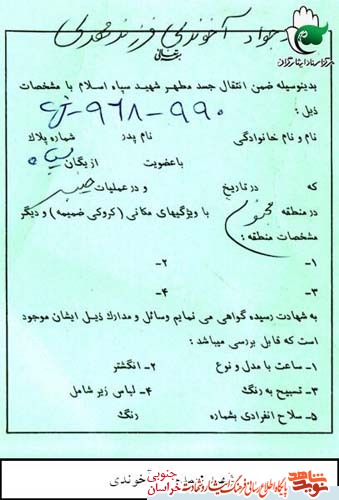 جواد آخوندی فرزند مهدی
بدینوسیله ضمن انتقال جسد مطهر شهید سپاه اسلام با مشخصات
ذیل :
۹۶۸-۹۹۰
نام و نام خانوادگی نام پدر شماره پلاک
باعضویت ازیگان سپاه
که در تاریخ و در عملیات خیبر
در منطقه مجنون با ویژگیهای مکانی (کروکی ضمیمه) و دیگر
مشخصات منطقه :
۱- ۲-
۳- ۴-
به شهادت رسیده گواهی می نمایم وسائل و مدارك ذیل ایشان موجود
است که قابل بررسی میباشد :
۱- ساعت با مدل و نوع ۲- انگشتر
۳- تسبیح به رنگ ۴- لباس زیر شامل
۵- سلاح انفرادی بشماره رنگ
جنوبی
خراسان
خوندی